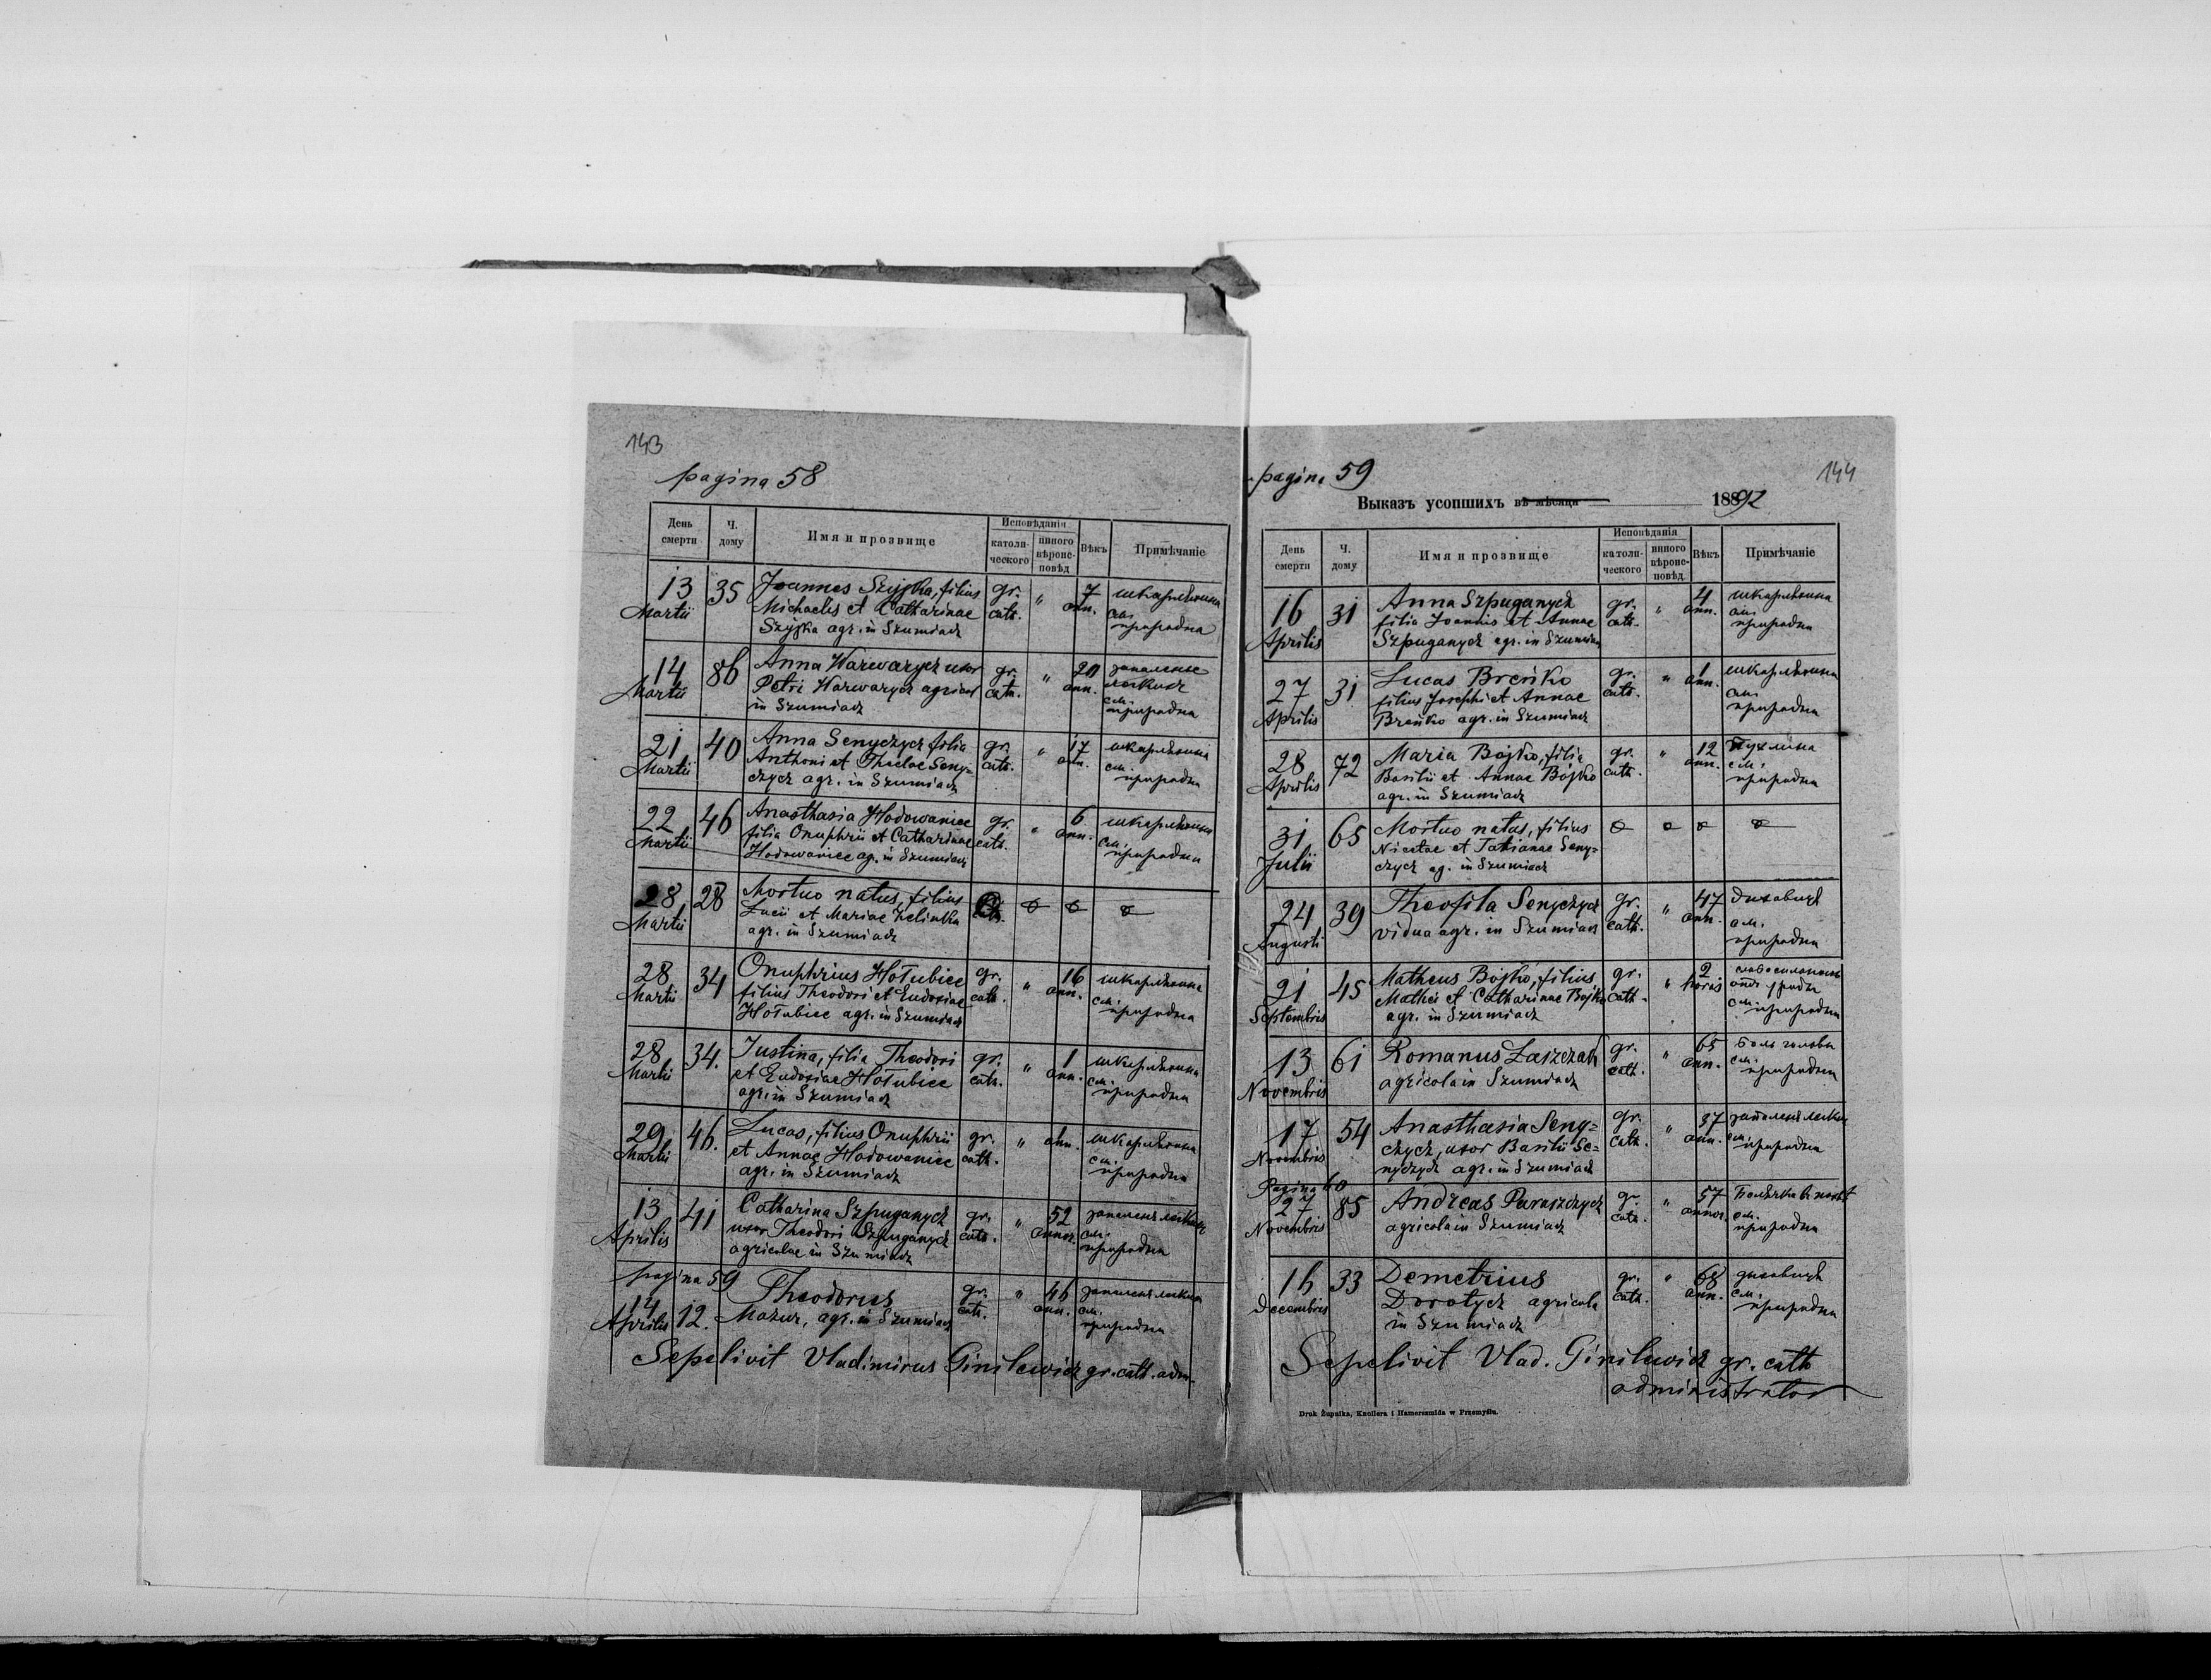 143
pagina 58
День смерти | Ч. дому | Имя и прозвище | Исповѣданія | католи-ческого | инного вѣроис-повѣд | Вѣкъ | Примѣчаніе
13 Martii | 35 | Joannes Szyjka, filius | gr. cath. | " | 7 ann. | шкарлятина
Michaelis et Catharinae | см.
Szyjka agr. in Szumiacz | природна
14 Martii | 86 | Anna Warwarycz uxor | gr. cath. | " | 20 ann. | запаленье
Petri Warwarycz agricol | легкихъ
in Szumiacz | см. природна
21 Martii | 40 | Anna Senyczycz filia | gr. cath. | " | 17 an. | шкарлятина
Anthoni et Theclae Seny= | см.
czycz agr. in Szumiacz | природна
22 Martii | 46 | Anasthasia Hodowaniec | gr. cath. | " | 6 ann. | шкарлятина
filia Onuphrii et Catharinae | см.
Hodowaniec ag. in Szumiacz | природна
28 Martii | 28 | Mortuo natus, filius
Lucii et Mariae Zelinka
agr. in Szumiacz
28 Martii | 34 | Onuphrius Hołubiec | gr. cath. | " | 16 ann. | шкарлятина
filius Theodori et Eudosiae | см.
Hołubiec agr. in Szumiacz | природна
28 Martii | 34. | Justina, filia Theodori | gr. cath. | " | 1 ann. | шкарлятина
et Eudosiae Hołubiec | см.
agr. in Szumiacz | природна
29 Martii | 46. | Lucas, filius Onuphrii | gr. cath. | " | ann. | шкарлятина
et Annae Hodowaniec | см.
agr. in Szumiacz | природна
13 Aprilis | 41 | Catharina Szpuganycz | gr. cath. | " | 52 annor. | запаленя легкихъ
uxor Theodori Szpuganycz | см.
agricolae in Szumiacz | природна
pagina 59
14 Aprilis | 12. | Theodorus | gr. cath. | " | 46 ann. | запаленя легких
Mazur, agr. in Szumiacz | см. природна
Sepelivit Vladimirus Ginilewicz gr. cath. adm.
pagina 59
144
Выказъ усопшихъ въ мѣсяца 1892
День смерти | Ч. дому | Имя и прозвище | Исповѣданія | католи-ческого | инного вѣроис-повѣд. | Вѣкъ | Примѣчаніе
16 Aprilis | 31 | Anna Szpuganycz | gr. cath. | " | 4 ann. | шкарлятина
filia Joannis et Annae | см.
Szpuganycz agr. in Szumiacz | природна
27 Aprilis | 31 | Lucas Breńko | gr. cath. | " | 1 ann. | шкарлятина
filius Josephi et Annae | см.
Breńko agr. in Szumiacz | природна
28 Aprilis | 72 | Maria Bojko, filia | gr. cath. | " | 12 ann. | Пухлина
Basilii et Annae Bojko | см.
agr. in Szumiacz | природна
31 Julii | 65 | Mortuo natus, filius
Nicetae et Tatianae Seny=
czycz ag. in Szumiacz
24 Augusti | 39 | Theofila Senyczycz | gr. cath. | " | 47 ann. | дихавиця
vidua agr. in Szumiacz | см. природна
21 Septembris | 45 | Matheus Bojko, filius | gr. cath. | " | 2 horis
Mathei et Catharinae Bojko
agr. in Szumiacz | см. природна
13 Novembris | 61 | Romanus Łaszczak | gr. cath. | " | 65 ann. | Боль головы
agricola in Szumiacz | см. природна
17 Novembris | 54 | Anasthasia Seny= | gr. cath. | " | 37 ann. | запаленя легких
czycz, uxor Basilii Se= | см.
nyczycz agr. in Szumiacz | природна
Pagina 60
27 Novembris | 85 | Andreas Paraszczycz | gr. cath. | " | 57 annor.
agricola in Szumiacz | см. природна
16 Decembris | 33 | Demetrius | gr. cath. | " | 68 ann. | дихавиця
Dorotycz agricola | см.
in Szumiacz | природна
Sepelivit Vlad. Ginilewicz gr. cath
administrator
Druk Żupnika, Knollera i Hamerszmida w Przemyślu.